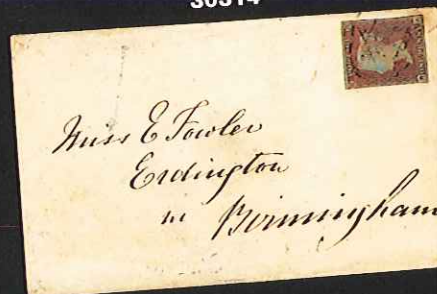 30314
Miss E Fowler
Erdington
nr Birmingham